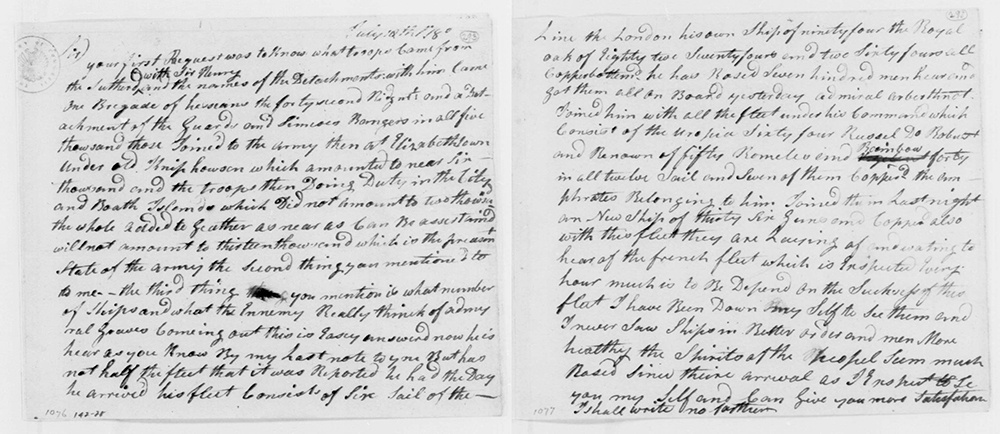 July 12th 1780
Sir
your first Request was to Know what troops Came from
the Sutherd with Sir Henry and the names of the Detachments with him Came
one Brigade of hesians the forty second Rigmt and a Dat-
achment of the Guards and Simcoes Rangers in all five
thousand those Joined to the army then at Elizabethtown
under old Kniphowsen which amounted to near Six
thousand and the troops then Doing Duty in the City
and Boath Islands which Did not amount to two thousand
the whole added to Geather as near as Can Be assertained
will not amount to thirteen thousand which is the preasent
State of the army the Second thing you mentioned to
me - the third thing you mention is what number
of Ships and what the Innemy Really think of admy
ral Graves Comeing out this is Easey answerd now he is
hear as you Know By my last note to you But has
not half the fleet that it was Reported he had the Day
he arrived his fleet Consists of Six Sail of the -
1076 142-78
Line the London his own Ship of ninety four the Royal
oak of Eighty two Seventy fours and two Sixty fours all
Copperbottmd he has Rased Seven hundred men hear and
got them all on Board yesterday admiral arbethnot
Joined him with all the fleet under his Command which
Consist of the Uropia Sixty four Russel Do Robust
and Renown of fifty Romelus and Rainbow forty
in all twelve Sail and Seven of them Coppord the am-
phrates Belonging to him Joined them Last night
an New Ship of thirty Six Guns and Copperd also
with this fleet they are
hear of the french fleet which is Inspected Every
hour much is to Be Depend on the Sucksess of this
fleet I have Been Down my Self to See them and
I never Saw Ships in Better order and men More
healthy the Spirits of the People Seem much
Rased Since theire arrival as I Expect to Se
you my Self and Can Give you more Satisfaction
I Shall write no farther
1077